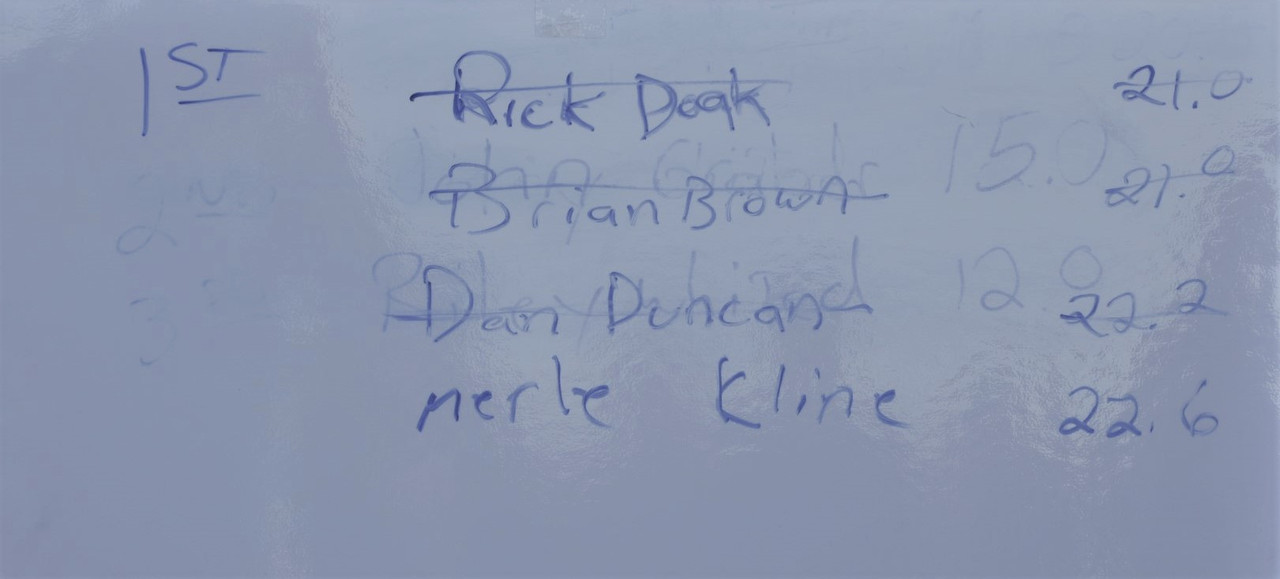 1ST Rick Doak 21.0
Brian Brown 21.0
Dan Duncan 22.2
merle Kline 22.6
2ND 15.0
3 12.0